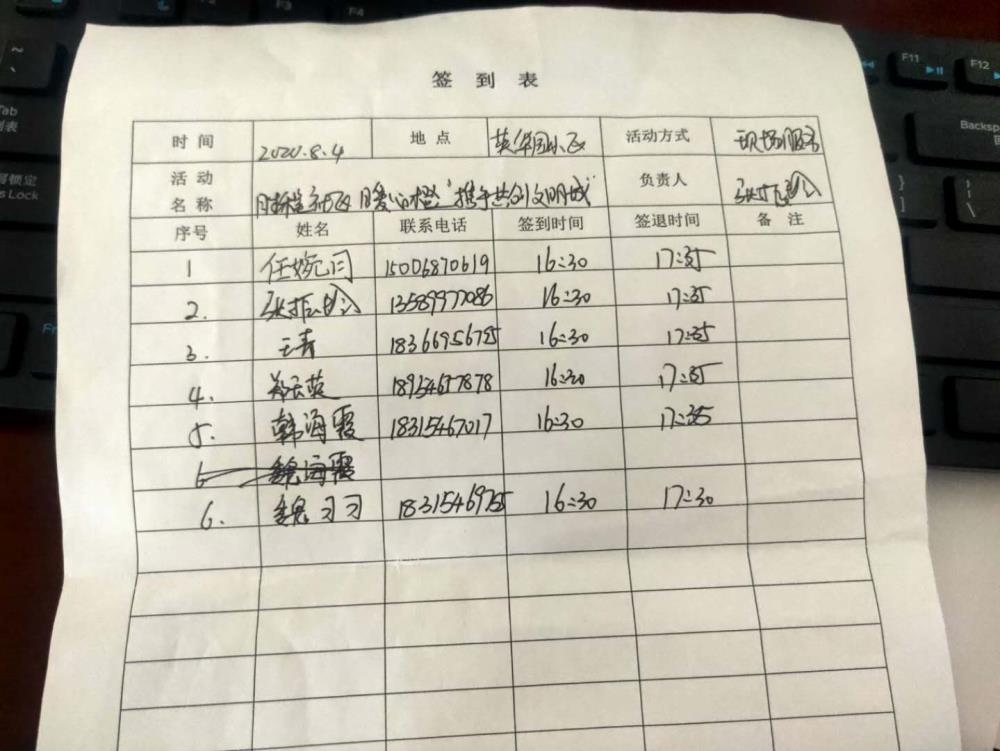 ~
、
F3
F4
F11
F12
Tab
Backsp
s Lock
}
]
Fn
签 到 表
时 间 2020.8.4 地 点 英华园小区 活动方式 现场服务
活 动
名 称 社区 暖心橙"携手共创文明城" 负责人 张
序号 姓名 联系电话 签到时间 签退时间 备 注
1 任婉 15006870619 16:30 17:35
2. 张 13589977086 16:30 17:35
3. 王青 18366956725 16:30 17:35
4. 郑云 16:30 17:35
5. 韩海霞 18315467017 16:30 17:35
6 魏海霞
6. 魏习习 16:30 17:30